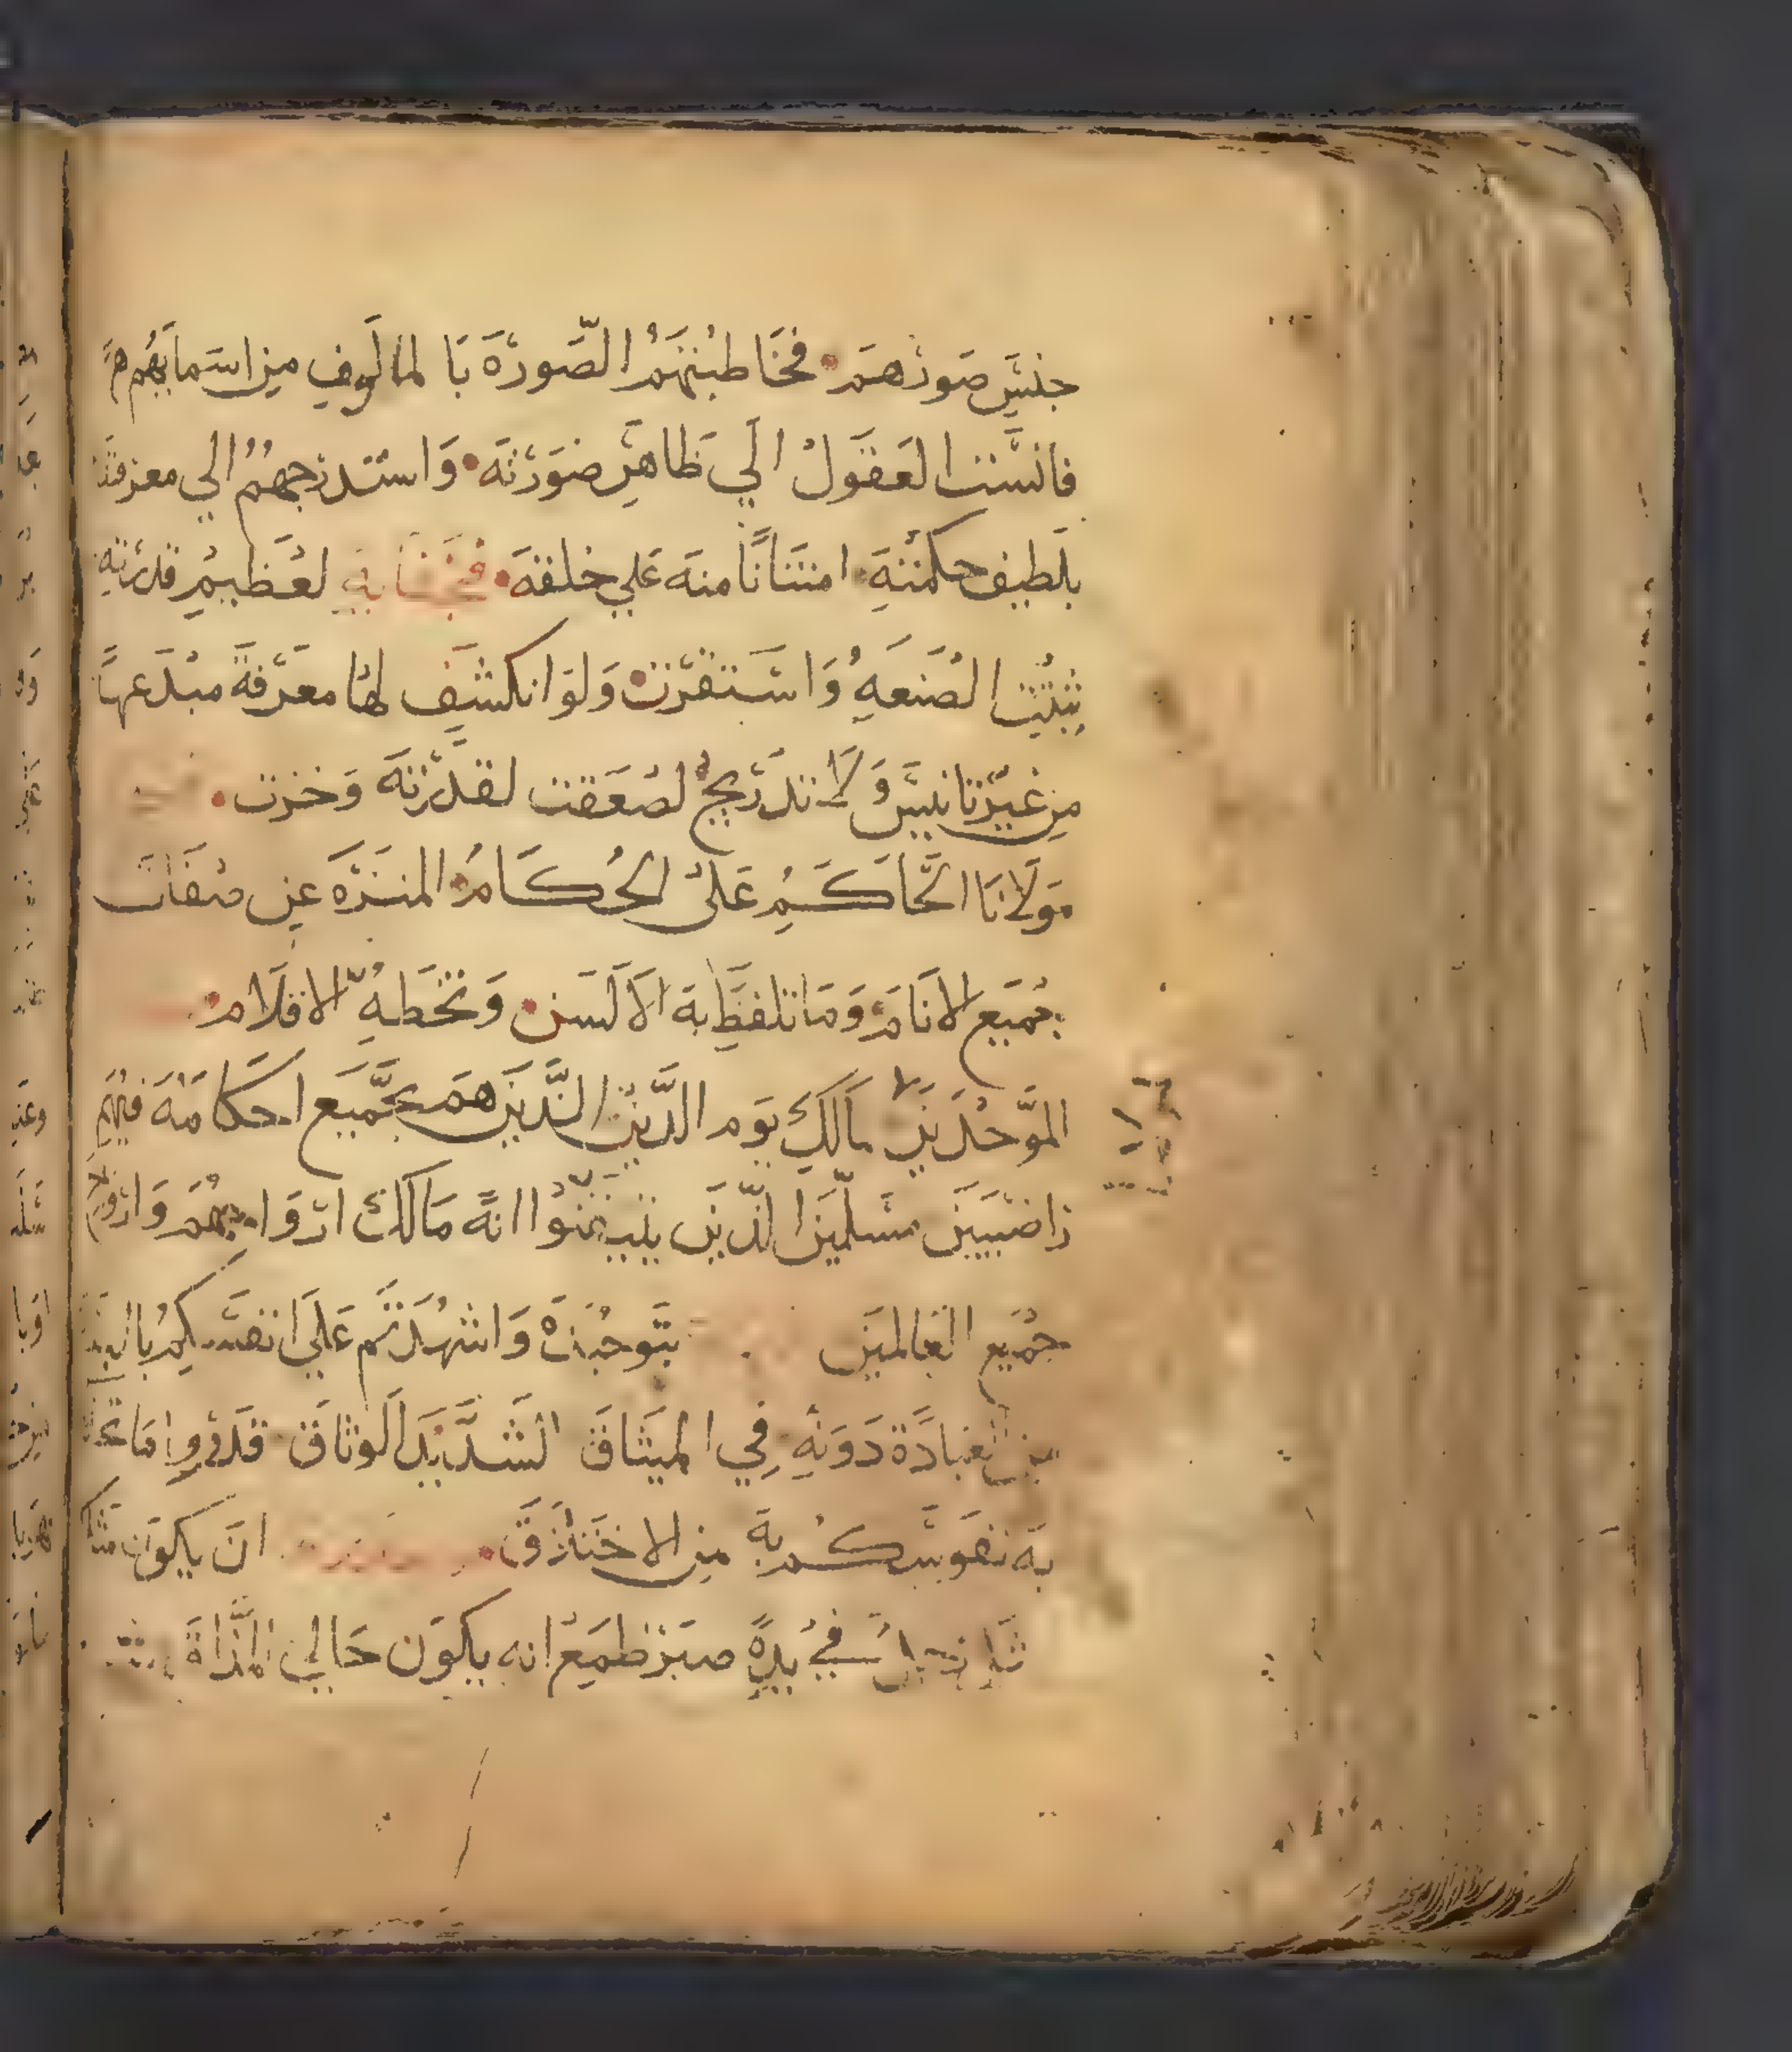 جنس صورهم فخاطبتهم الصورة با لمالوف من اسمايهم
فانست العقول الي ظاهر صورته واستدرجهم الي معرفته
بلطيف حكمته امتنانا منه علي خلقه لعظيم قدرته
تثبت الصنعه واستقرت ولو انكشف لها معرفة مبدعها
من غير تانيس ولا تدريج لصعقت لقدرته وخرت
مولانا الحاكم على الحكام المنزه عن صفات
جميع الانام وما تلفظ به الالسن وتخطه الاقلام
الموحدين مالك يوم الدين الذين هم بجميع احكامه فيهم
راضيين مسلمين الذين تيقنوا انه مالك ارواحهم
جميع العالمين واشهدتم علي انفسكم
عبادة دونه في الميثاق الشديد الوثاق
به نفوسكم به من ان يكون
طمع انه يكون